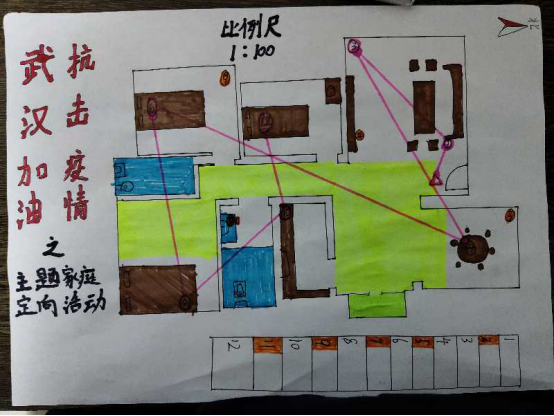 比例尺
1:100
北
武汉加油
抗击疫情
之
主题家庭
定向活动
1
2
3
4
5
6
7
8
9
10
11
12